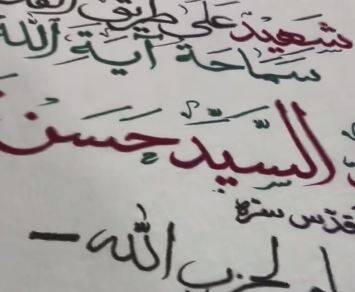 شهيد على طريق
سَمَاحَة آيَة الله
السَّيِّد حَسَن
قدس سره
لحزب الله –